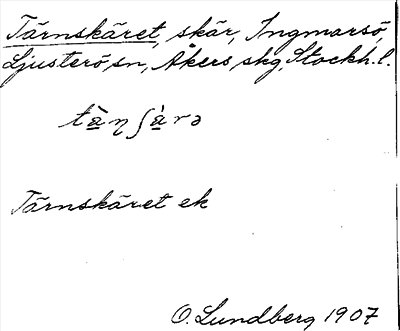 Tärnskäret, skär, Ingmarsö,
Ljusterö, sn, Åkers, skg, Stockh. l.
tä̀ŋʃä̀rə
Tärnskäret ek
O. Lundberg 1907